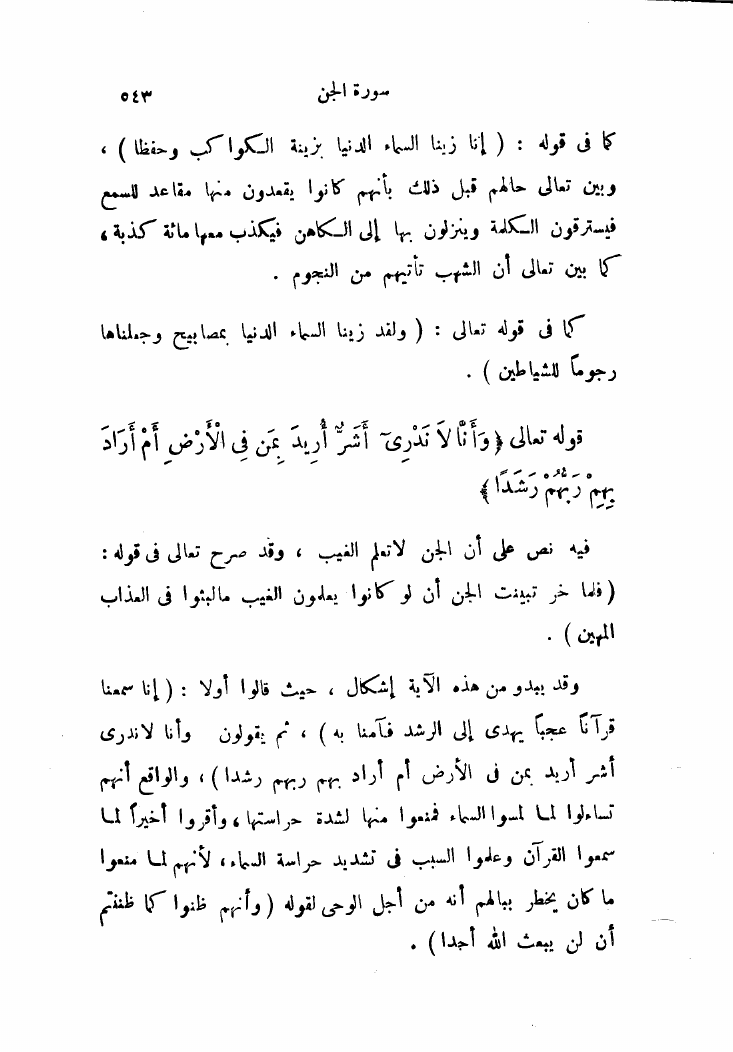 سورة الجن ٥٤٣
كما فى قوله : ( إنا زينا السماء الدنيا بزينة الكواكب وحفظا ) ،
وبين تعالى حالهم قبل ذلك بأنهم كانوا يقعدون منها مقاعد للسمع
فيسترقون الكلمة وينزلون بها إلى الكاهن فيكذب معها مائة كذبة ،
كما بين تعالى أن الشهب تأتيهم من النجوم .
كما فى قوله تعالى : ( ولقد زينا السماء الدنيا بمصابيح وجعلناها
رجوماً للشياطين ) .
قوله تعالى ﴿ وَأَنَّا لَا نَدْرِىٓ أَشَرٌّ أُرِيدَ بِمَن فِى الْأَرْضِ أَمْ أَرَادَ
بِهِمْ رَبُّهُمْ رَشَدًا ﴾
فيه نص على أن الجن لاتعلم الغيب ، وقد صرح تعالى فى قوله :
( فلما خر تبينت الجن أن لو كانوا يعلمون الغيب مالبثوا فى العذاب
المهين ) .
وقد يبدو من هذه الآية إشكال ، حيث قالوا أولا : ( إنا سمعنا
قرآناً عجباً يهدى إلى الرشد فآمنا به ) ، ثم يقولون وأنا لاندرى
أشر أريد بمن فى الأرض أم أراد بهم ربهم رشدا ) ، والواقع أنهم
تساءلوا لما لمسوا السماء فمنعوا منها لشدة حراستها ، وأقروا أخيراً لما
سمعوا القرآن وعلموا السبب فى تشديد حراسة السماء ، لأنهم لما منعوا
ما كان يخطر ببالهم أنه من أجل الوحى لقوله ( وأنهم ظنوا كما ظننتم
أن لن يبعث الله أحدا ) .